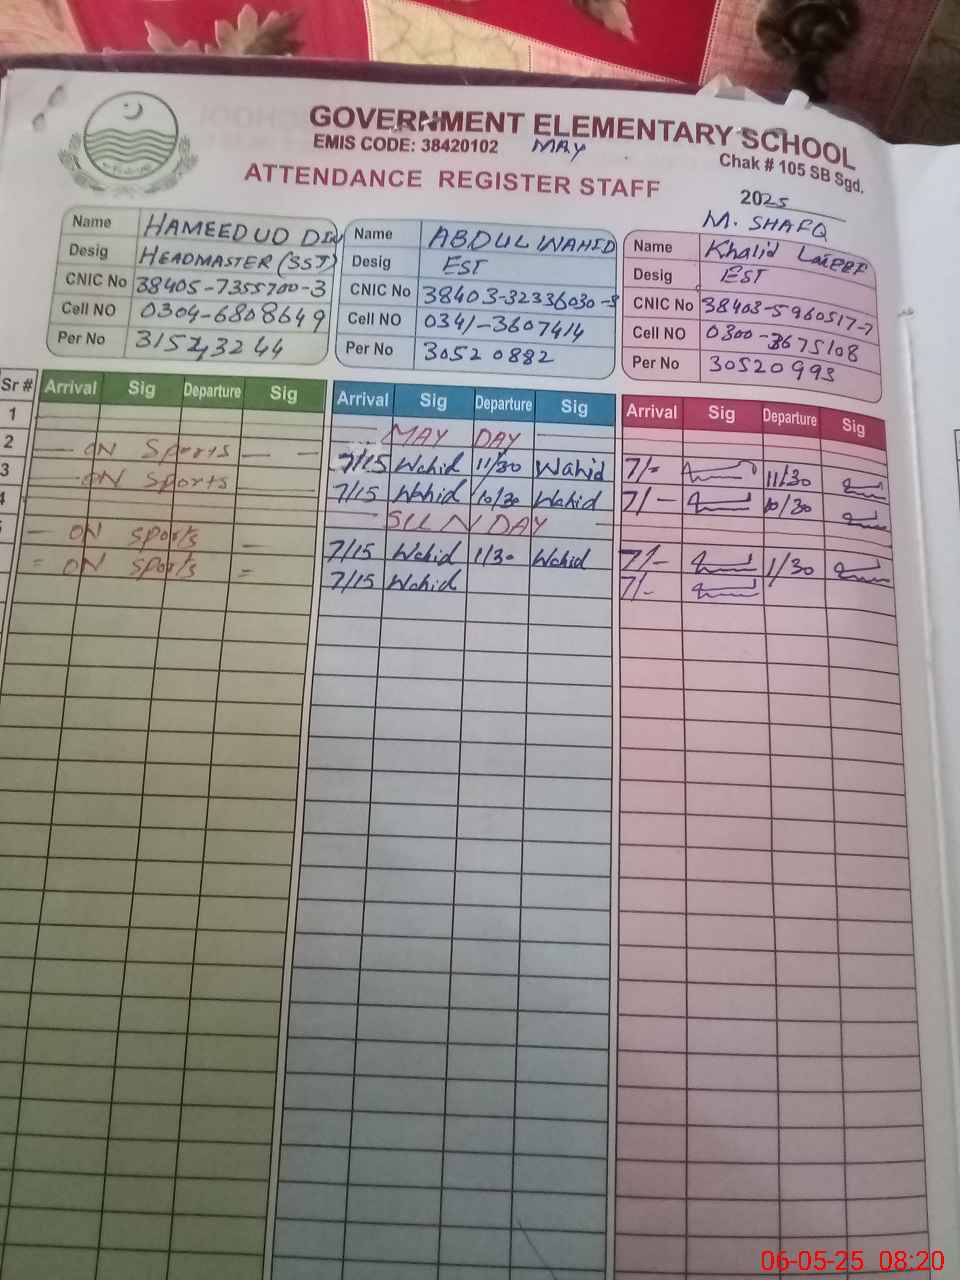 GOVERNMENT ELEMENTARY SCHOOL
EMIS CODE: 38420102 MAY Chak # 105 SB Sgd.
ATTENDANCE REGISTER STAFF 2025
M. SHAFQ
Name HAMEED UD DIN Name ABDUL WAHID Name Khalid
Desig HEADMASTER (SST) Desig EST Desig EST
CNIC No 38405-7355700-3 CNIC No 38403-32336030-3 CNIC No 38403-5960517-7
Cell NO 0304-6808649 Cell NO 0341-3607414 Cell NO 0300-3675108
Per No 31573244 Per No 30520882 Per No 30520993
Sr # Arrival Sig Departure Sig Arrival Sig Departure Sig Arrival Sig Departure Sig
1 MAY DAY
2 ON Sports 7/15 Wahid 11/30 Wahid 7/- 11/30
3 ON Sports 7/15 Wahid 10/30 Wahid 7/- 10/30
4 SUNDAY
5 ON Sports 7/15 Wahid 1/30 Wahid 7/- 1/30
ON Sports 7/15 Wahid 7/-
06-05-25 08:20